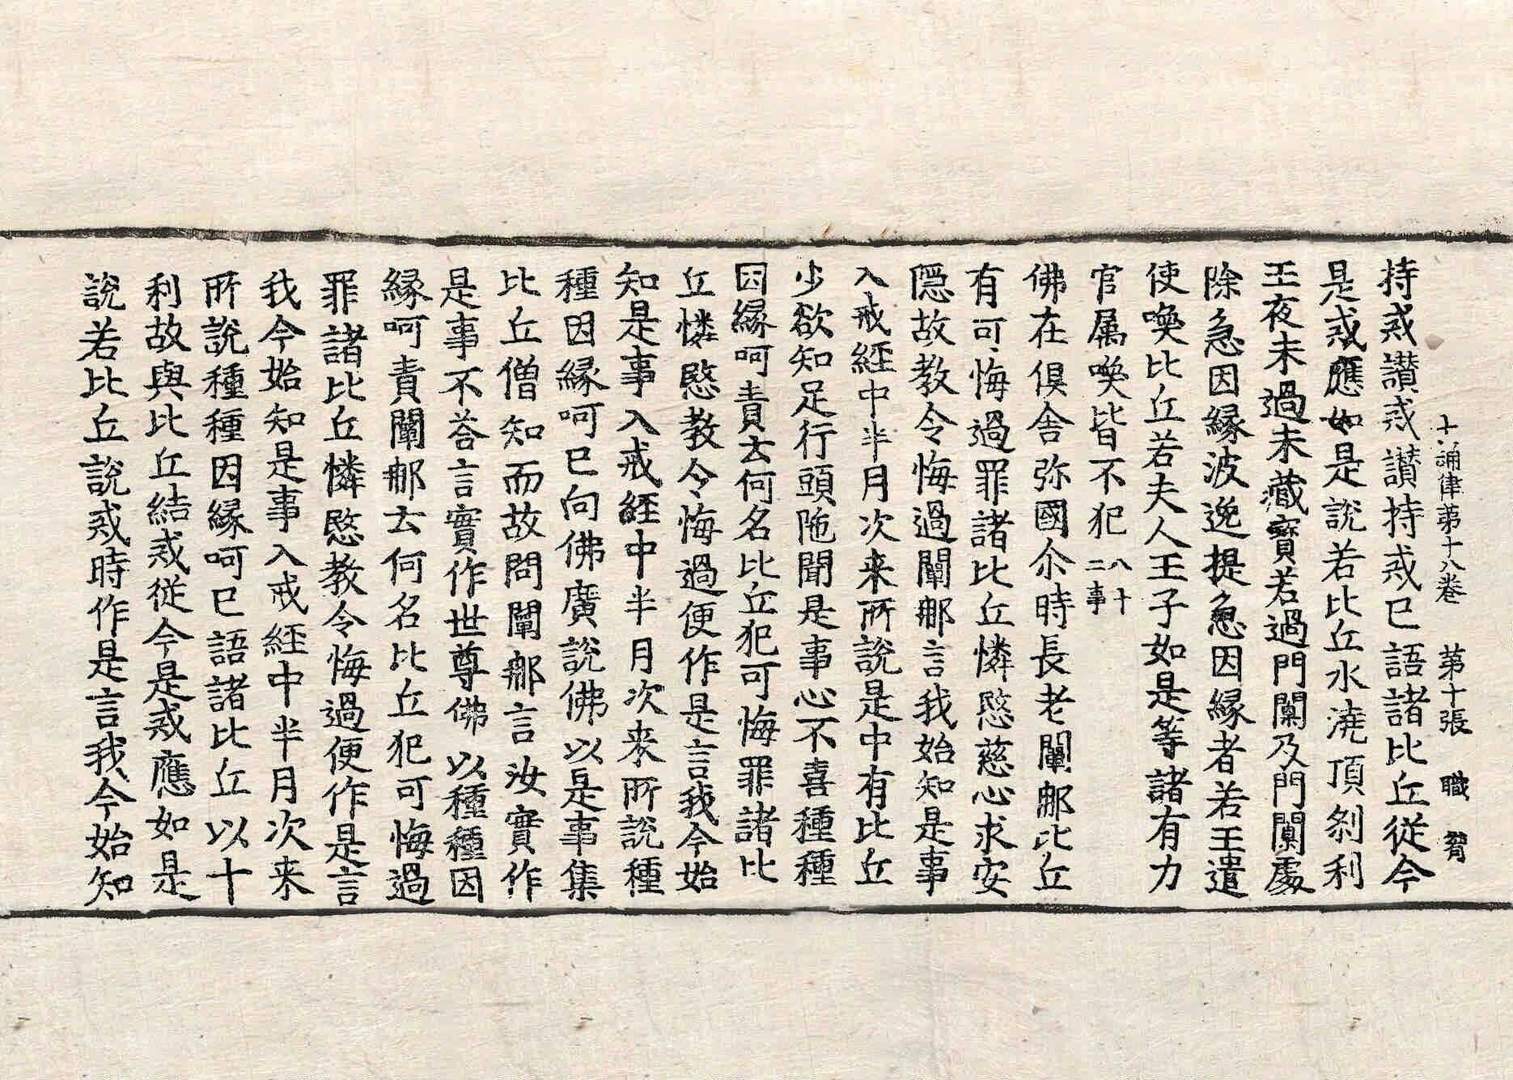 十誦律第十八卷　第十張　職
持戒讃戒讃持戒已語諸比丘從今
是戒應如是說若比丘水澆頂刹利
王夜未過未藏寶若過門閫及門閫處
除急因縁波逸提急因縁者若王遣
使喚比丘若夫人王子如是等諸有力
官属喚皆不犯八十二事
佛在俱舎弥國尒時長老闡那比丘
有可悔過罪諸比丘憐愍慈心求安
隠故教令悔過闡那言我始知是事
入戒經中半月次来所說是中有比丘
少欲知足行頭陁聞是事心不喜種種
因縁呵責云何名比丘犯可悔罪諸比
丘憐愍教令悔過便作是言我今始
知是事入戒經中半月次来所說種
種因縁呵已向佛廣說佛以是事集
比丘僧知而故問闡那言汝實作
是事不荅言實作世尊佛以種種因
縁呵責闡那云何名比丘犯可悔過
罪諸比丘憐愍教令悔過便作是言
我今始知是事入戒經中半月次来
所說種種因縁呵已語諸比丘以十
利故與比丘結戒從今是戒應如是
說若比丘說戒時作是言我今始知